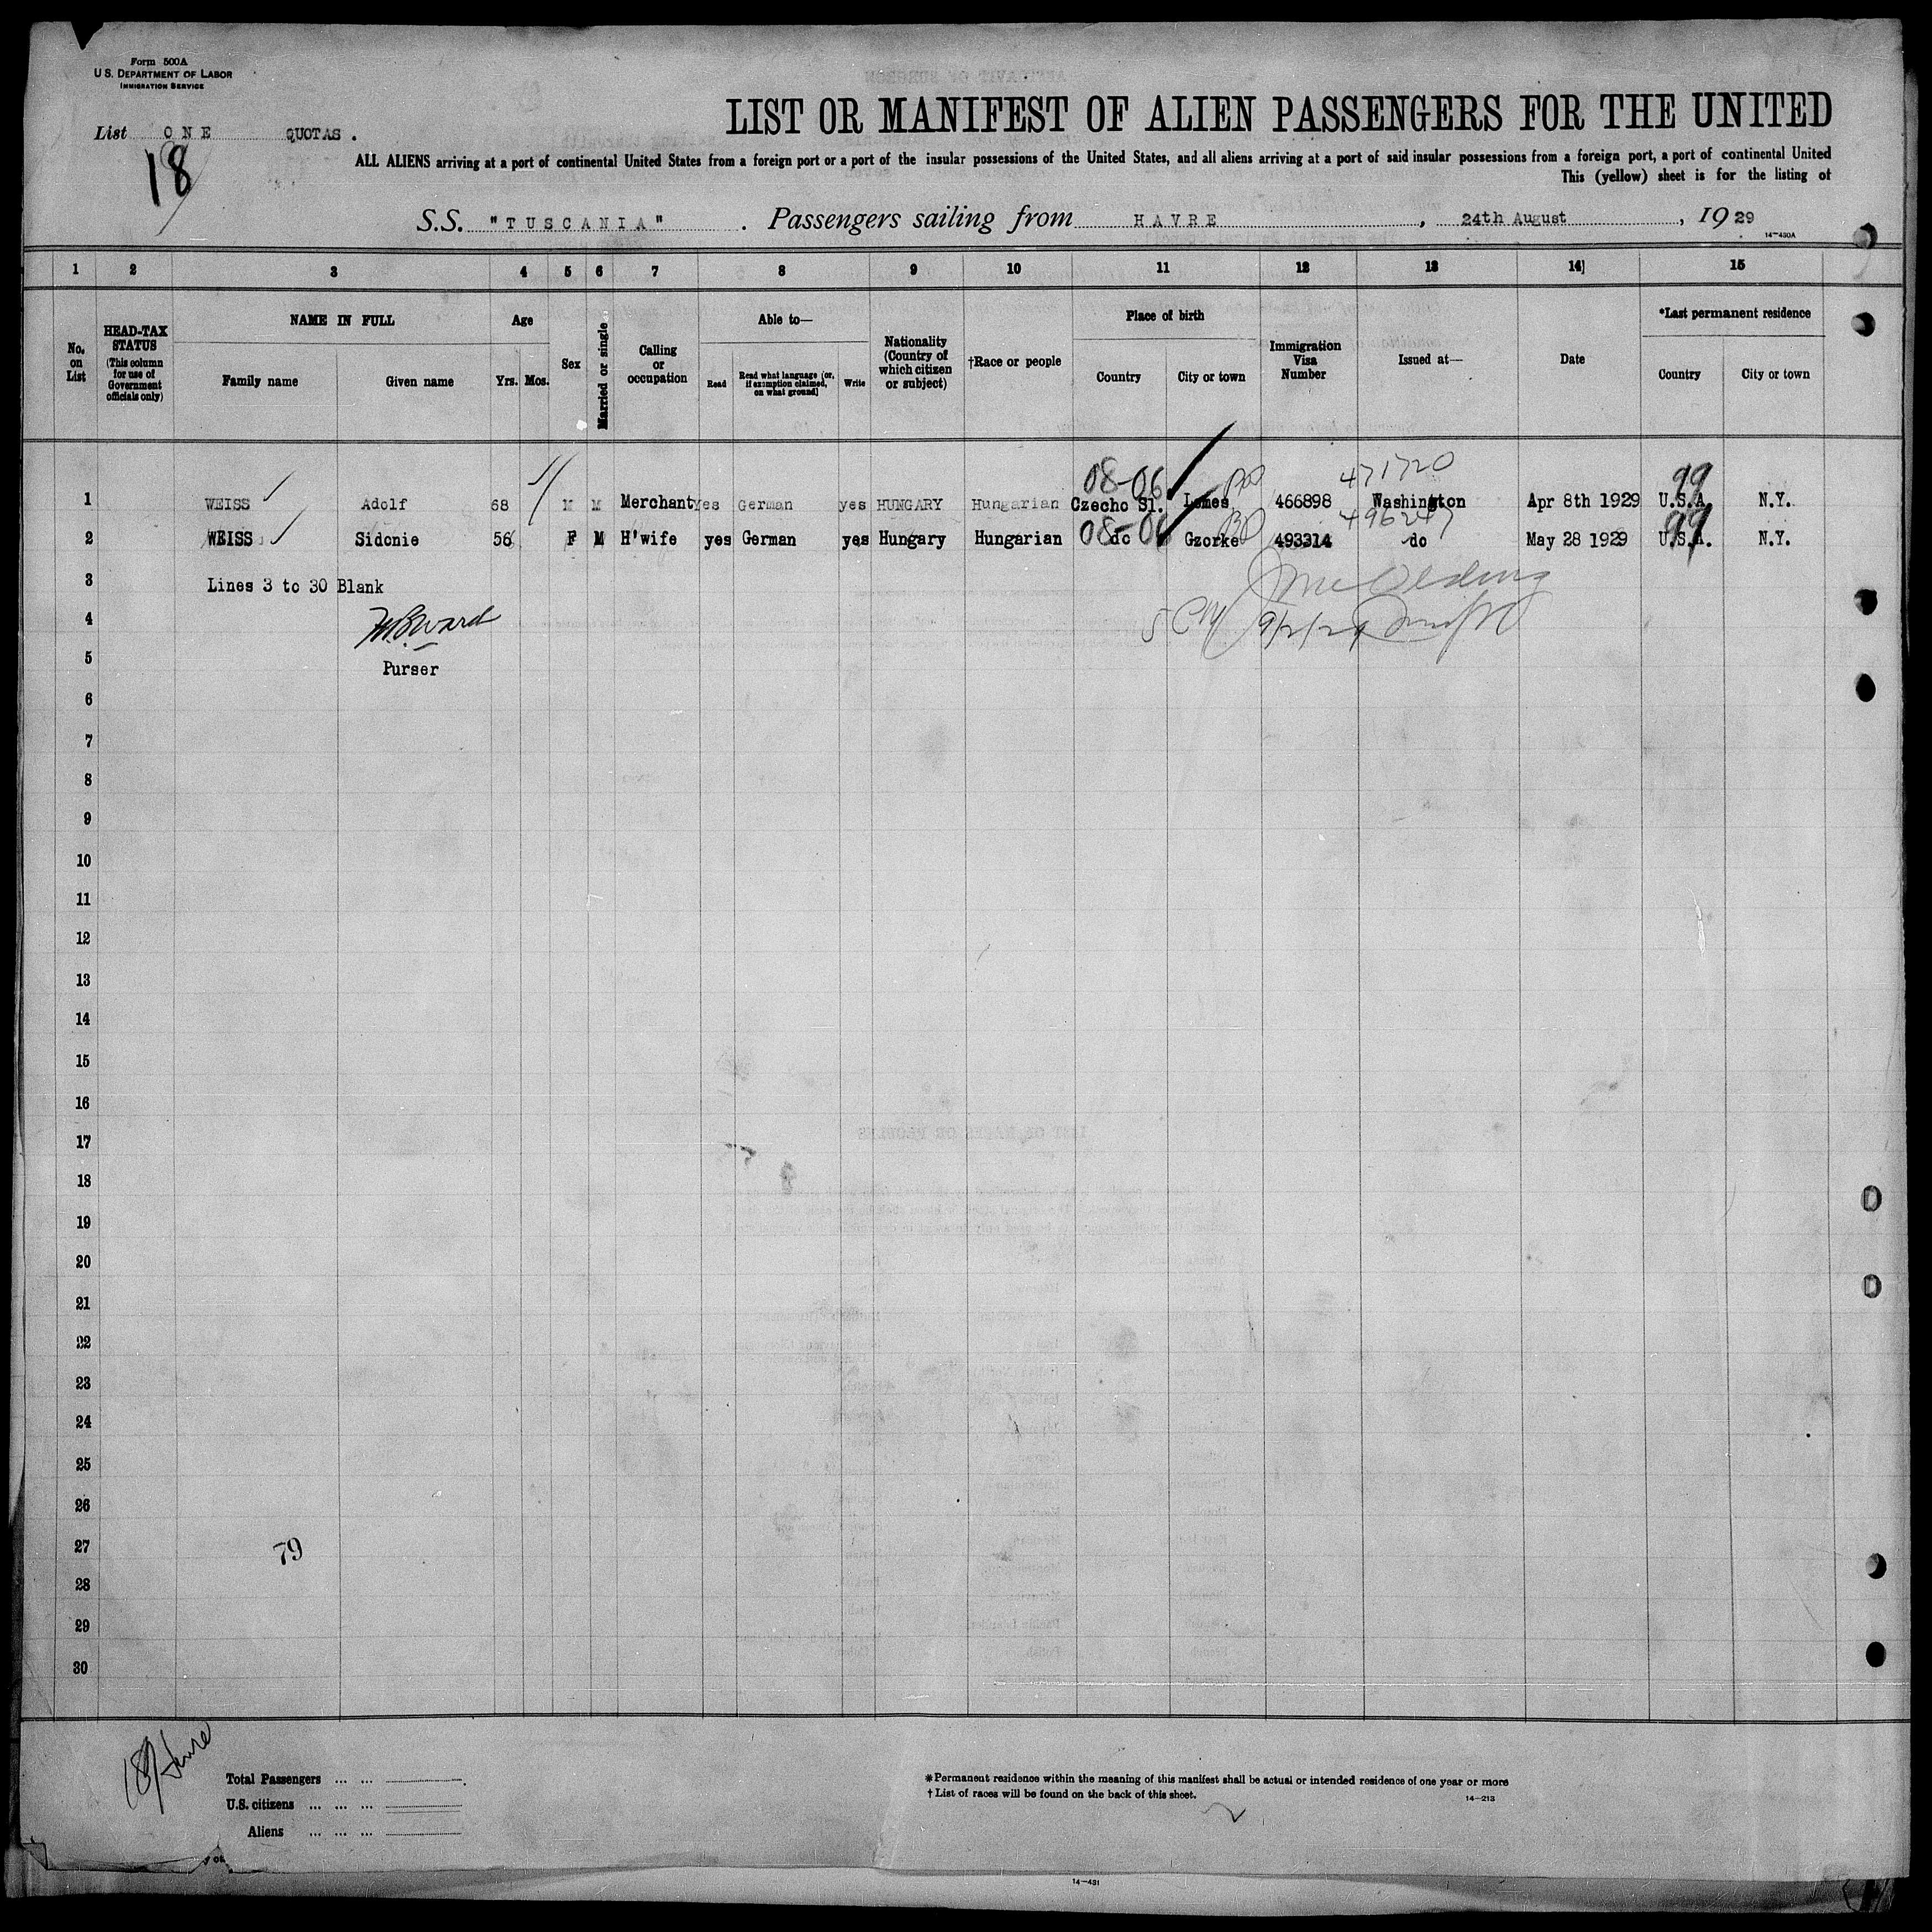 Form 500A
U.S. DEPARTMENT OF LABOR
IMMIGRATION SERVICE
List ONE QUOTAS.
18
LIST OR MANIFEST OF ALIEN PASSENGERS FOR THE UNITED
ALL ALIENS arriving at a port of continental United States from a foreign port or a port of the insular possessions of the United States, and all aliens arriving at a port of said insular possessions from a foreign port, a port of continental United
This (yellow) sheet is for the listing of
S.S. "TUSCANIA". Passengers sailing from HAVRE, 24th August, 1929
14-430A
1 2 3 4 5 6 7 8 9 10 11 12 13 14 15
No. on List
HEAD-TAX STATUS (This column for use of Government officials only)
NAME IN FULL
Family name Given name
Age
Yrs. Mos.
Sex
Married or single
Calling or occupation
Able to—
Read Read what language (or, if exemption claimed, on what ground) Write
Nationality (Country of which citizen or subject)
†Race or people
Place of birth
Country City or town
Immigration Visa Number
Issued at—
Date
*Last permanent residence
Country City or town
08-06 471720 99
1 WEISS Adolf 68 M M Merchant yes German yes HUNGARY Hungarian Czecho Sl. Lomes 466898 Washington Apr 8th 1929 U.S.A. N.Y.
08-06 496247 99
2 WEISS Sidonie 56 F M H'wife yes German yes Hungary Hungarian do Gzorke 493314 do May 28 1929 U.S.A. N.Y.
3 Lines 3 to 30 Blank
4 9/2/29
5 Purser
6
7
8
9
10
11
12
13
14
15
16
17
18
19
20
21
22
23
24
25
26
27 79
28
29
30
Total Passengers ... ...
U.S. citizens ... ... ...
Aliens ... ... ...
*Permanent residence within the meaning of this manifest shall be actual or intended residence of one year or more
† List of races will be found on the back of this sheet.
14-213
2
14-431